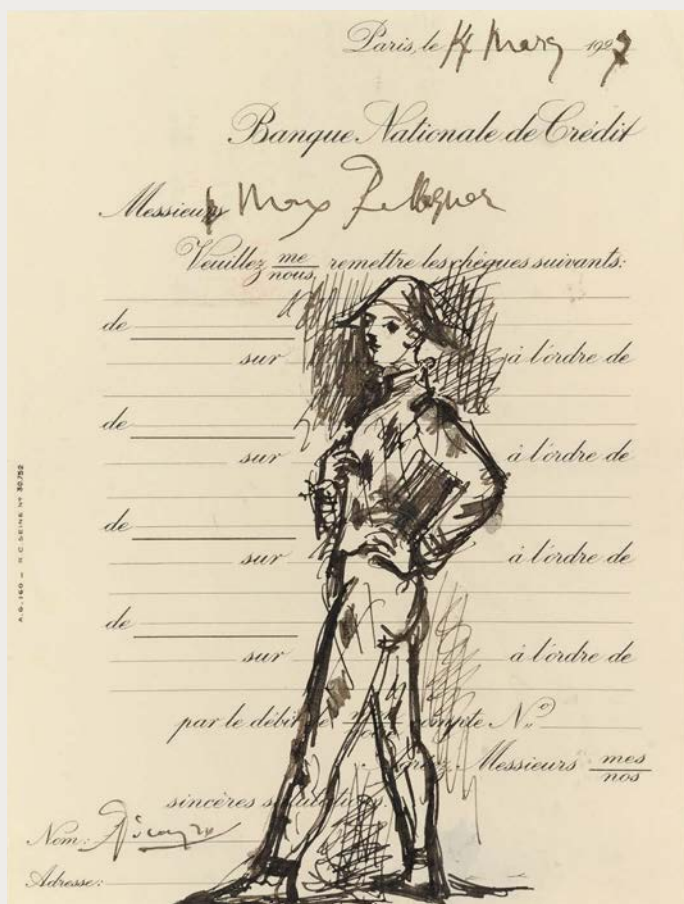 Paris, le 14 Mars 1927
Banque Nationale de Crédit
Messieurs Max Pellequer
Veuillez me/nous remettre les chèques suivants:
de
sur à l'ordre de
de
sur à l'ordre de
de
sur à l'ordre de
de
sur à l'ordre de
par le débit de compte N°
Messieurs mes/nos
sincères salutations
Nom: Picasso
Adresse:
A.G. 160 — R.C. SEINE Nº 30.752